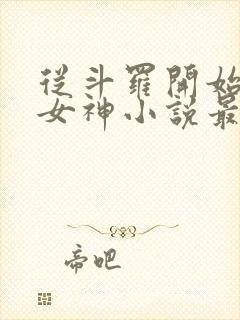 從斗羅開始
女神小說最
帝吧